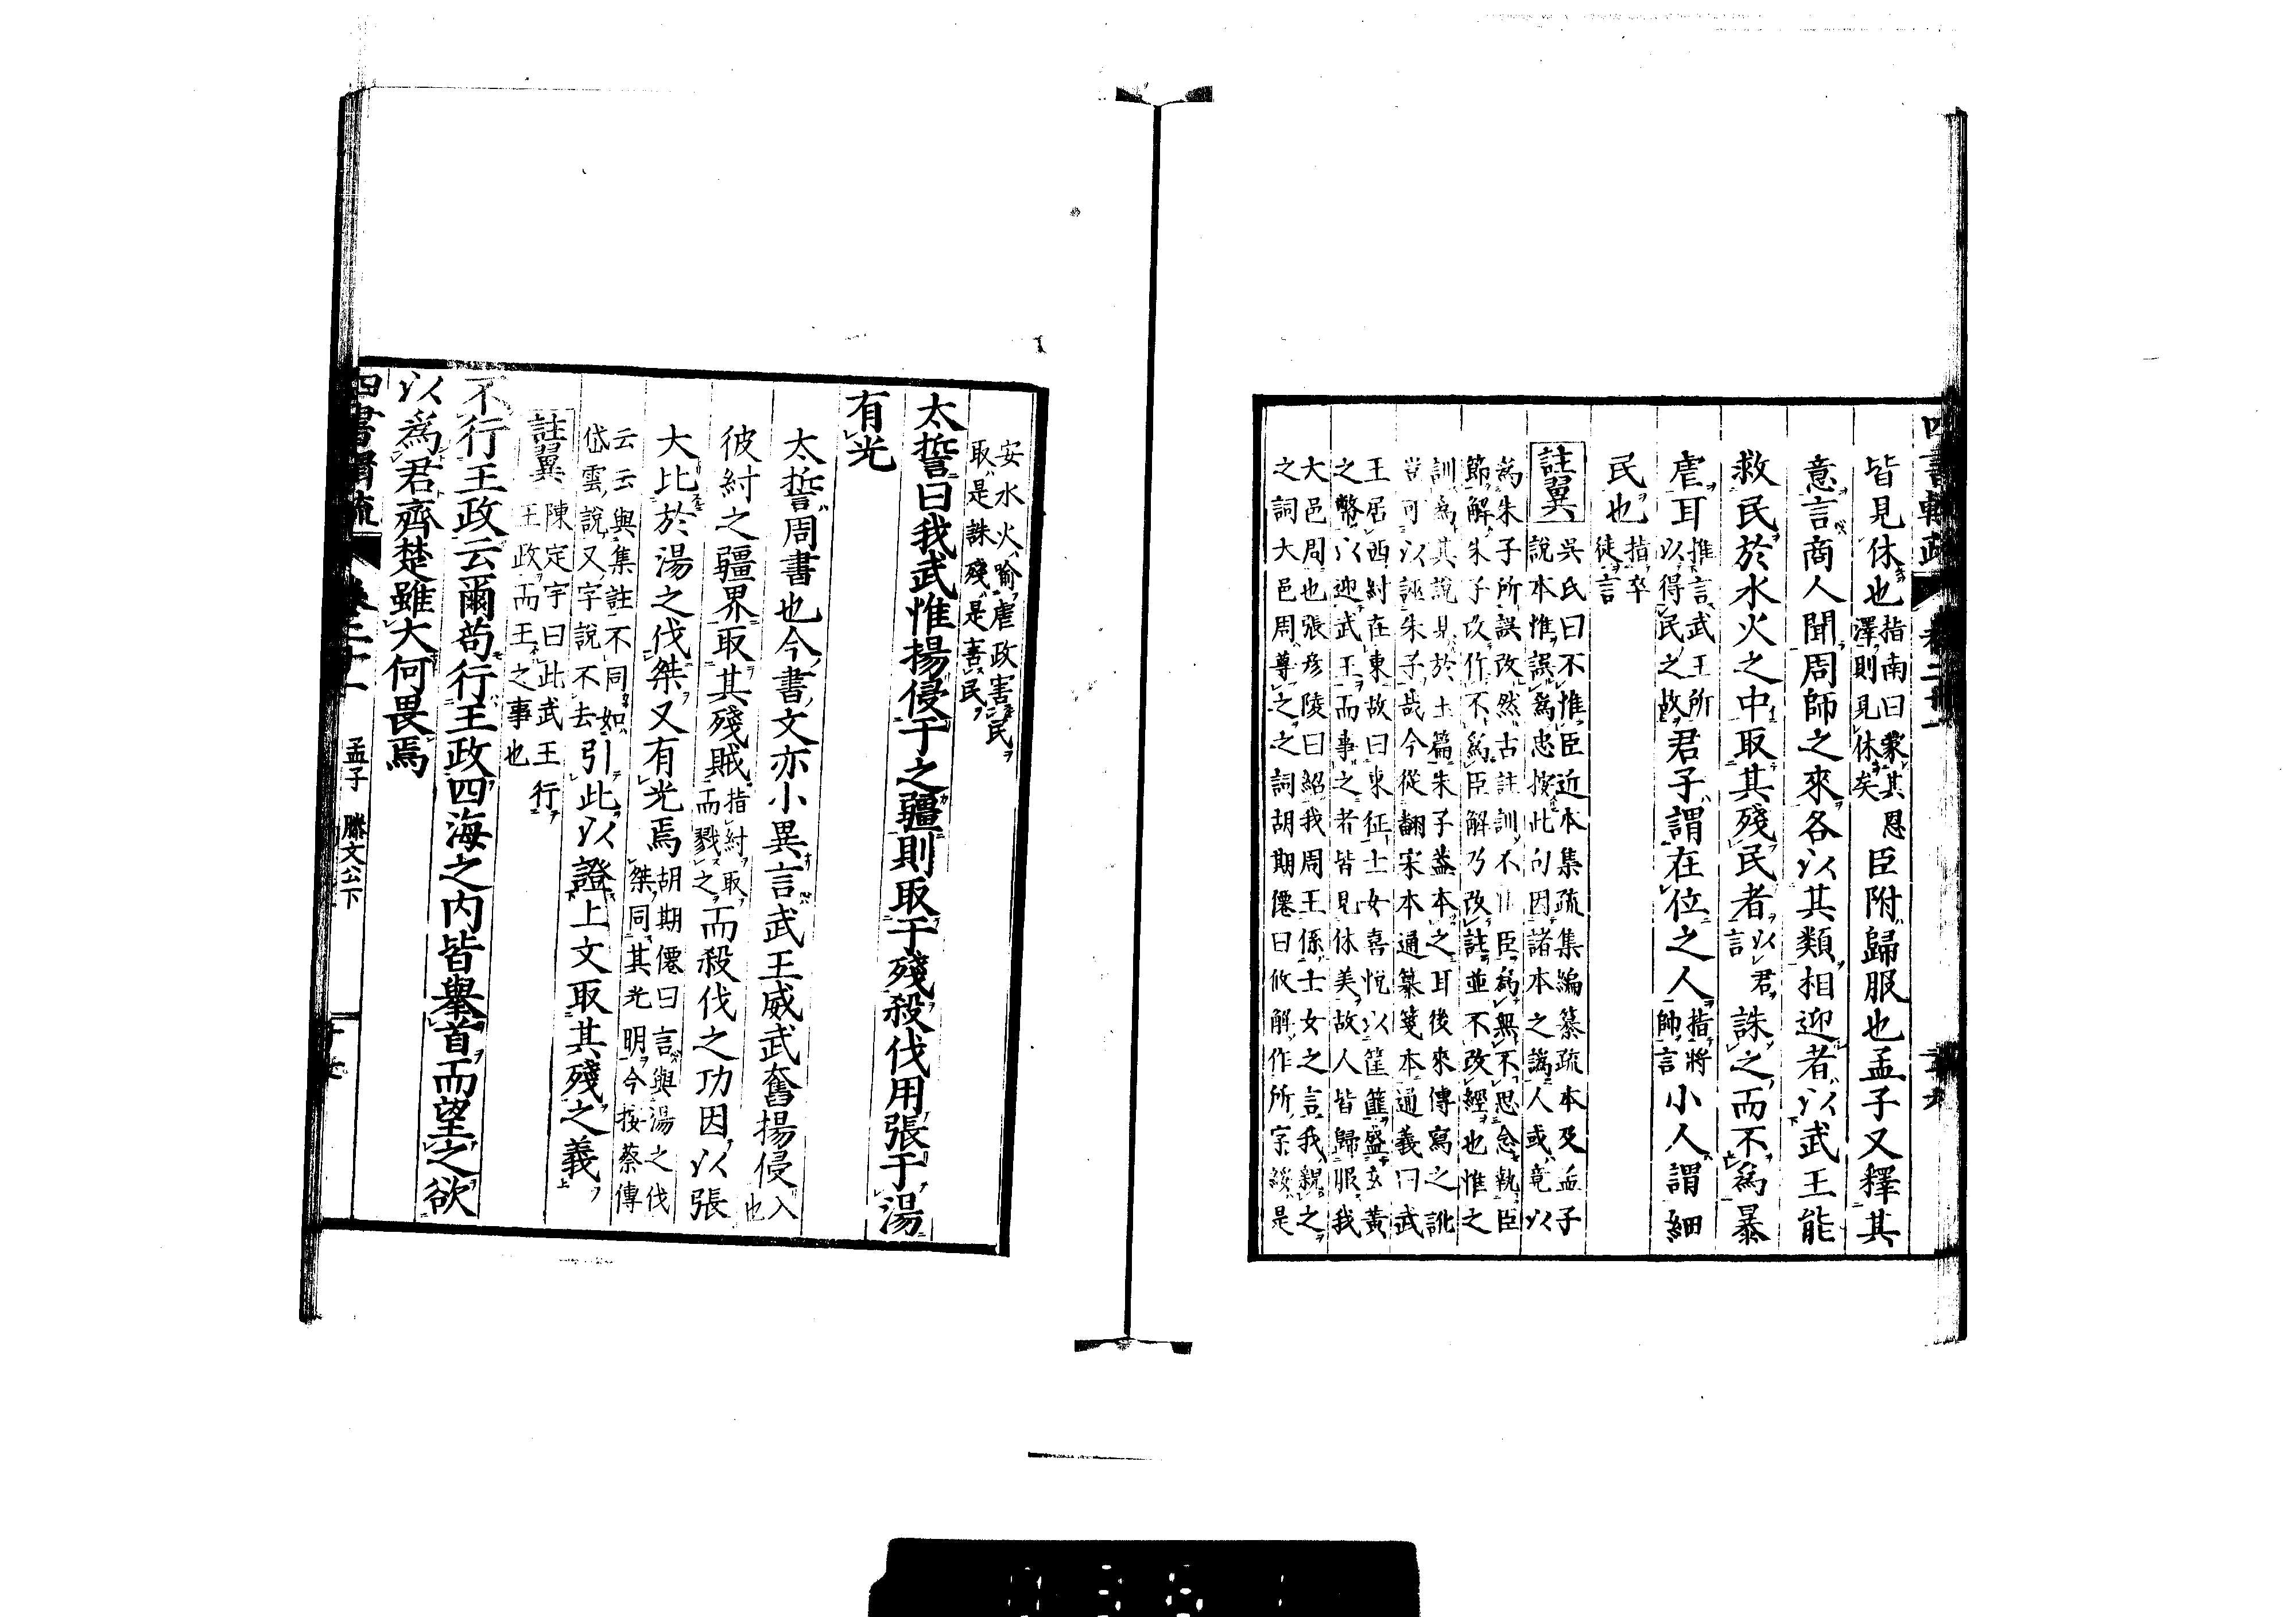 皆見休也指南曰蒙其恩澤則見休矣臣附歸服也孟子又釋其
意言商人聞周師之來各以其類相迎者以武王能
救民於水火之中取其殘民者言以君誅之而不爲暴
虐耳推言武王所以得民之故君子謂在位之人指將帥言小人謂細
民也指卒徒言
註翼
吳氏曰不惟臣近本集疏集編纂疏本及孟子
說本惟誤爲忠按此句因諸本之譌人或竟以
爲朱子所誤改然古註訓不惟臣爲無不思念執臣
節解朱子改作不爲臣解乃改註並不改經也惟之
訓爲其說見於上篇朱子蓋本之耳後來傳寫之訛
豈可以誣朱子哉今從翻宋本通纂箋本通義曰武
王居西紂在東故曰東征士女喜悅以筐篚盛玄黃
之幣以迎武王而事之者皆見休美故人皆歸服我
大邑周也張彥陵曰紹我周王係士女之言我親之
之詞大邑周尊之之詞胡期僊曰攸解作所字綏是
安水火喻虐政害民
取是誅殘是害民
太誓曰我武惟揚侵于之疆則取于殘殺伐用張于湯
有光
太誓周書也今書文亦小異言武王威武奮揚侵入也
彼紂之疆界取其殘賊指紂取而戮之而殺伐之功因以張
大比於湯之伐桀又有光焉胡期僊曰言與湯之伐桀同其光明今按蔡傳
云云與集註不同如岱雲說又字說不去引此以證上文取其殘之義
註翼
陳定宇曰此武王行
王政而王之事也
不行王政云爾苟行王政四海之內皆舉首而望之欲
以爲君齊楚雖大何畏焉
孟子 滕文公下